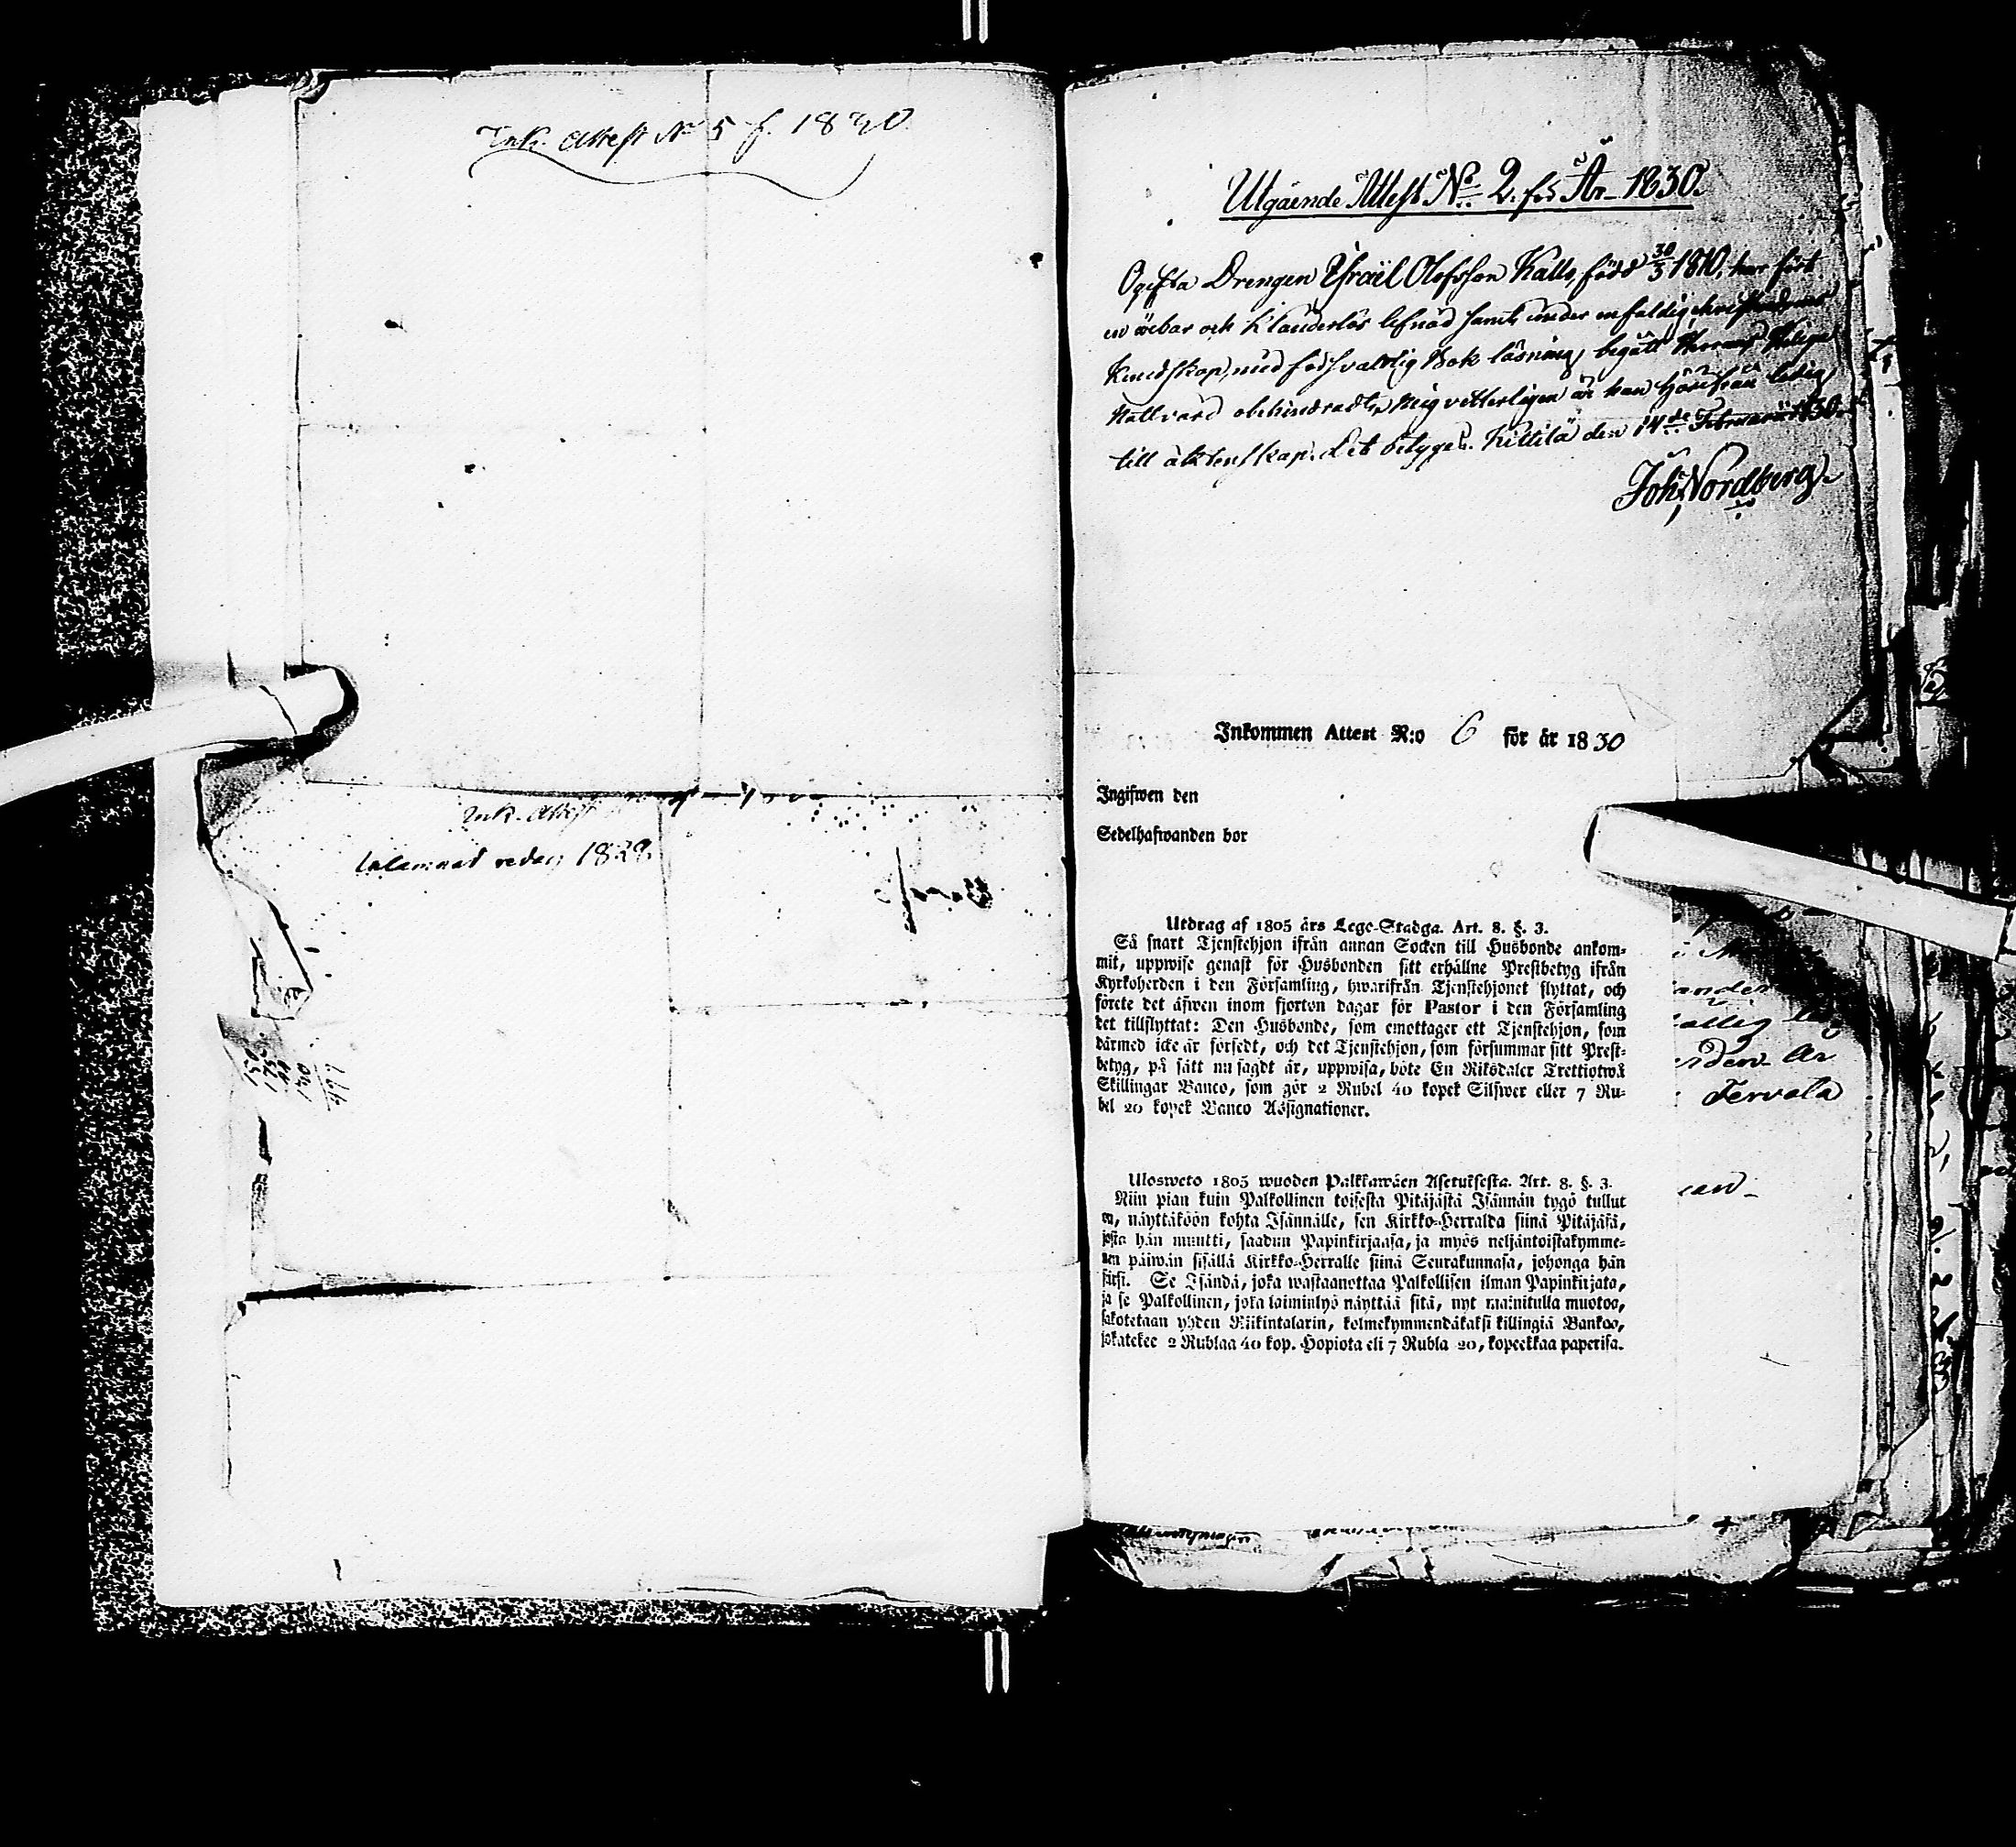 Ink. Attest No 5 f. 1830
Ink. Attest
1828
Utgående Attest No 2. för År 1830.
Ogifta Drengen Isräel Olofsson Kallo, född 30/3 1810, har fört
en ärbar och klanderlös lefnad samt under enfaldig christendoms
kundskap, med försvarlig Bok läsning, begått Herrans Heliga
Nattvard obehindradt, Mig vetterligen är han härifrån ledig
till äktenskap. Det betygas. Kittilä den 14de Februarii 1830.
Joh. Nordberg
Inkommen Attest N:o 6 för år 1830
Ingifwen den
Sedelhafwanden bor
Utdrag af 1805 års Lego-Stadga. Art. 8. §. 3.
Så snart Tjenstehjon ifrån annan Socken till Husbonde ankom-
mit, uppwise genast för Husbonden sitt erhållne Prestbetyg ifrån
Kyrkoherden i den Församling, hwarifrån Tjenstehjonet flyttat, och
förete det äfwen inom fjorton dagar för Pastor i den Församling
det tillflyttat: Den Husbonde, som emottager ett Tjenstehjon, som
därmed icke är försedt, och det Tjenstehjon, som försummar sitt Prest-
betyg, på sätt nu sagdt är, uppwisa, böte En Riksdaler Trettiotwå
Skillingar Banco, som gör 2 Rubel 40 kopek Silfwer eller 7 Ru-
bel 20 kopek Banco Assignationer.
Ulosweto 1805 wuoden Palkkawäen Asetuksesta. Art. 8. §. 3.
Niin pian kuin Palkollinen toisesta Pitäjästä Isännän tygö tullut
on, näyttäköön kohta Isännälle, sen Kirkko-Herralda siinä Pitäjäsä,
josta hän muutti, saadun Papinkirjaasa, ja myös neljäntoistakymme-
nen päiwän sisällä Kirkko-Herralle siinä Seurakunnasa, johonga hän
siirsi. Se Isändä, joka wastaanottaa Palkollisen ilman Papinkirjata,
ja se Palkollinen, joka laiminlyö näyttää sitä, nyt mainitulla muotoo,
sakotetaan yhden Riikintalarin, kolmekymmendäkaksi killingiä Bankoo,
jokatekee 2 Rublaa 40 kop. Hopiota eli 7 Rubla 20, kopeekkaa paperisa.
Tervola